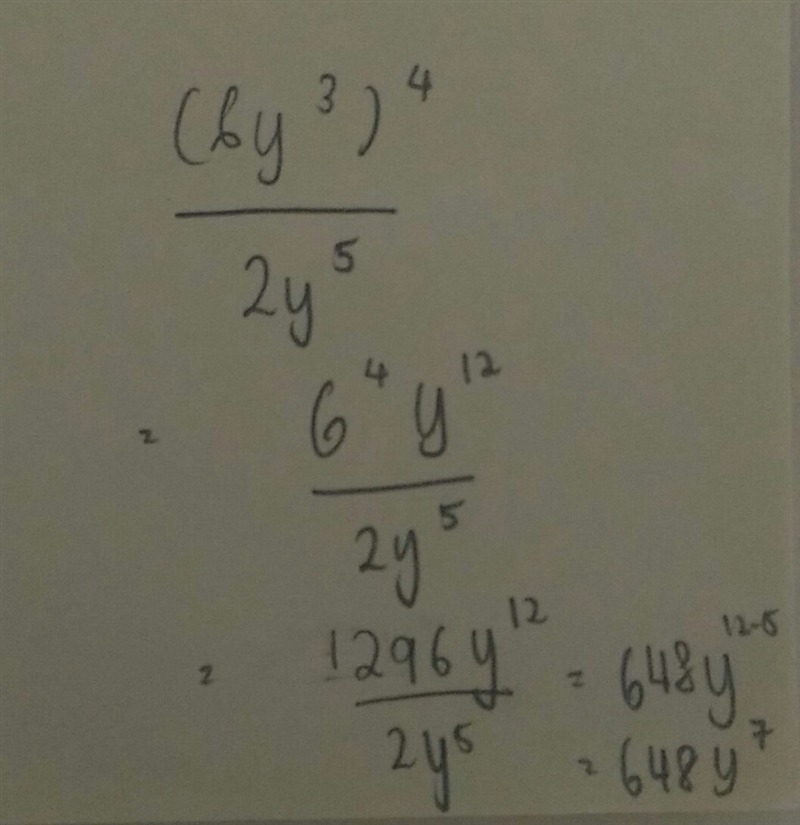 (6y³)⁴
2y⁵
= 6⁴y¹²
2y⁵
= 1296y¹² = 648y¹²⁻⁵
2y⁵ = 648y⁷